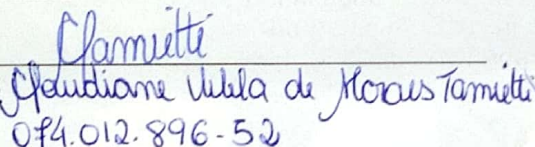 CTamietti
Claudiane Vilela de Morais Tamietti
074.012.896-52